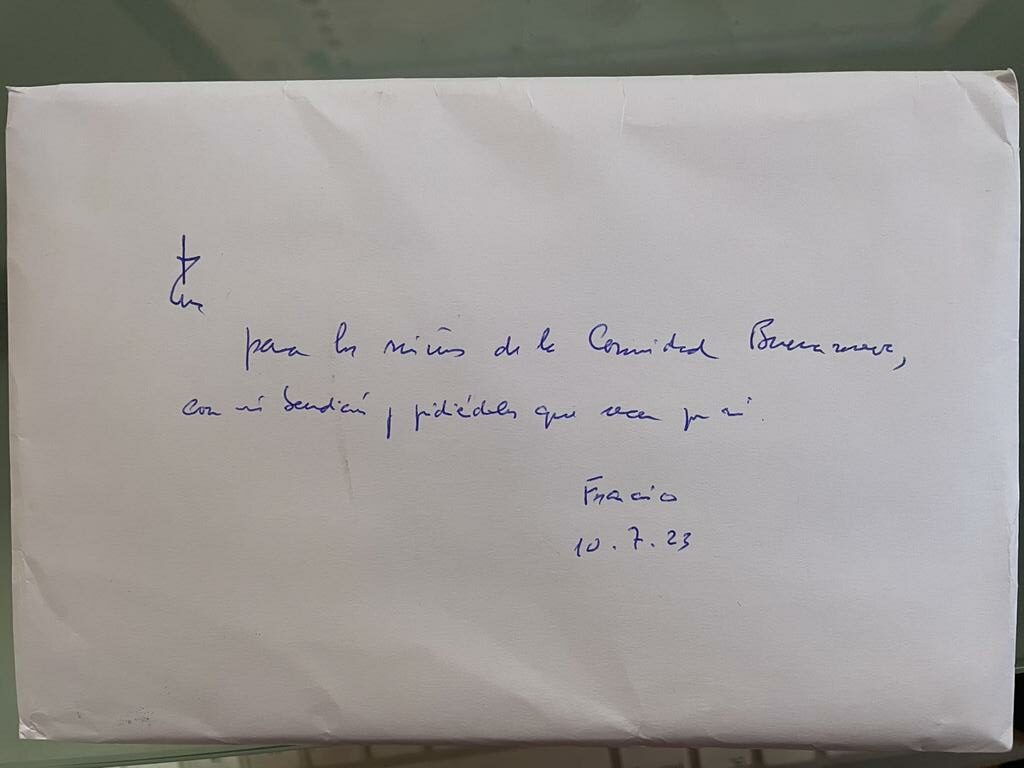 para los niños de la Comunidad Buenanueva,
con mi bendición y pidiéndoles que recen por mí.
Francisco
10.7.23